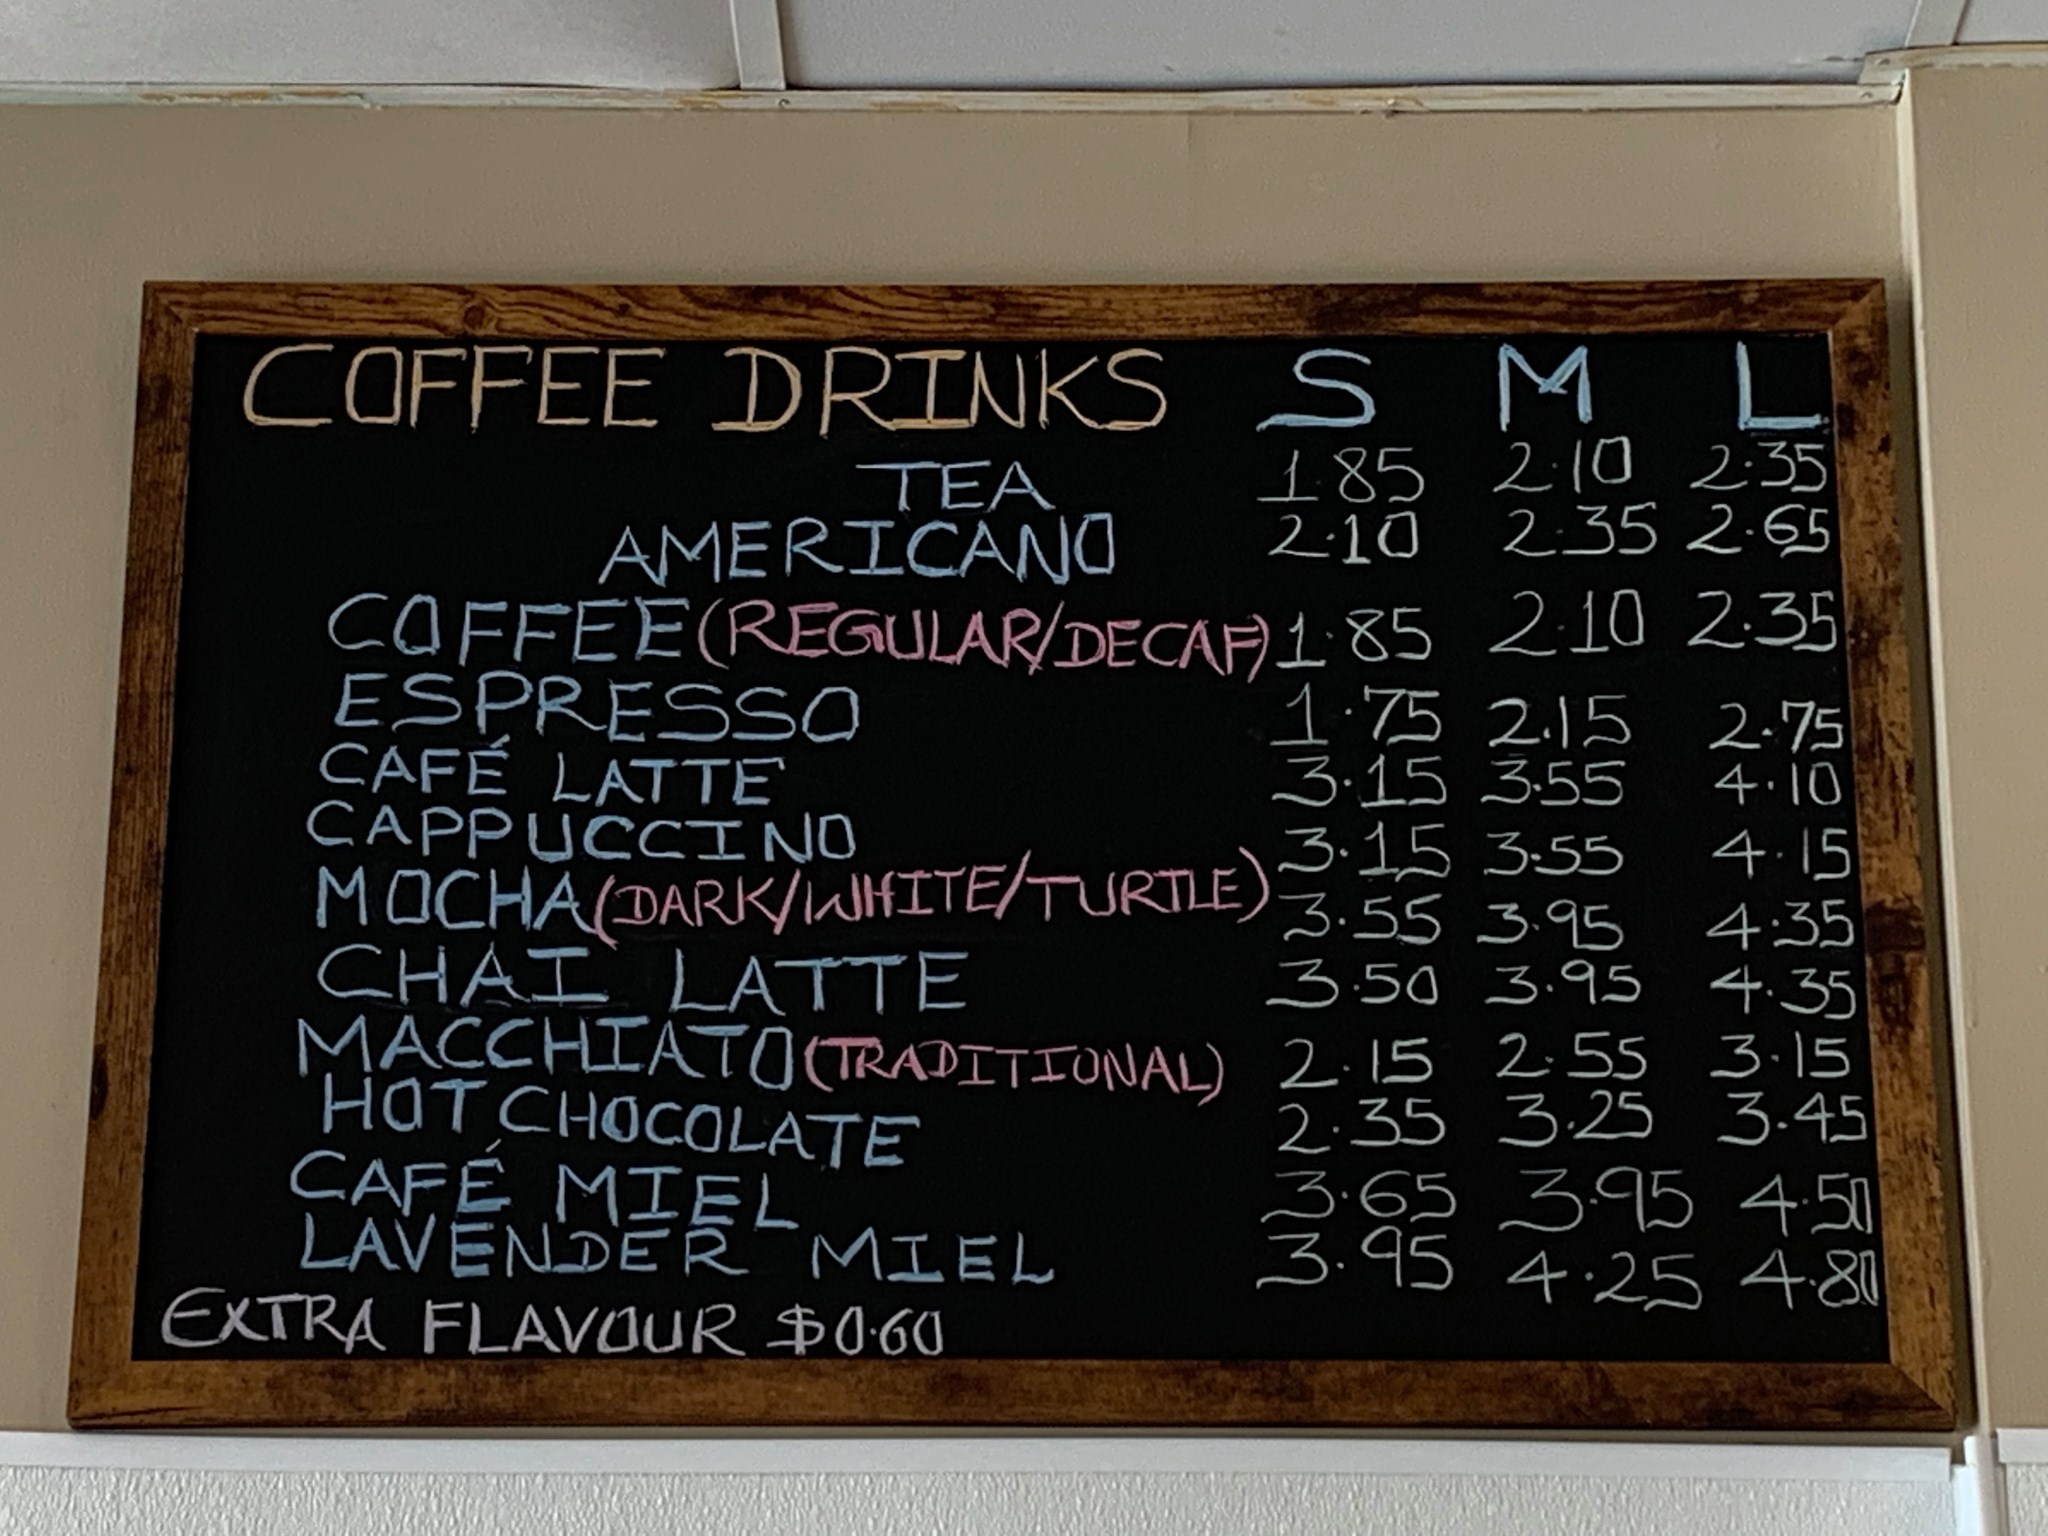 COFFEE DRINKS S M L
TEA 1.85 2.10 2.35
AMERICANO 2.10 2.35 2.65
COFFEE (REGULAR/DECAF) 1.85 2.10 2.35
ESPRESSO 1.75 2.15 2.75
CAFÉ LATTE 3.15 3.55 4.10
CAPPUCCINO 3.15 3.55 4.15
MOCHA (DARK/WHITE/TURTLE) 3.55 3.95 4.35
CHAI LATTE 3.50 3.95 4.35
MACCHIATO (TRADITIONAL) 2.15 2.55 3.15
HOT CHOCOLATE 2.35 3.25 3.45
CAFÉ MIEL 3.65 3.95 4.50
LAVENDER MIEL 3.95 4.25 4.80
EXTRA FLAVOUR $0.60